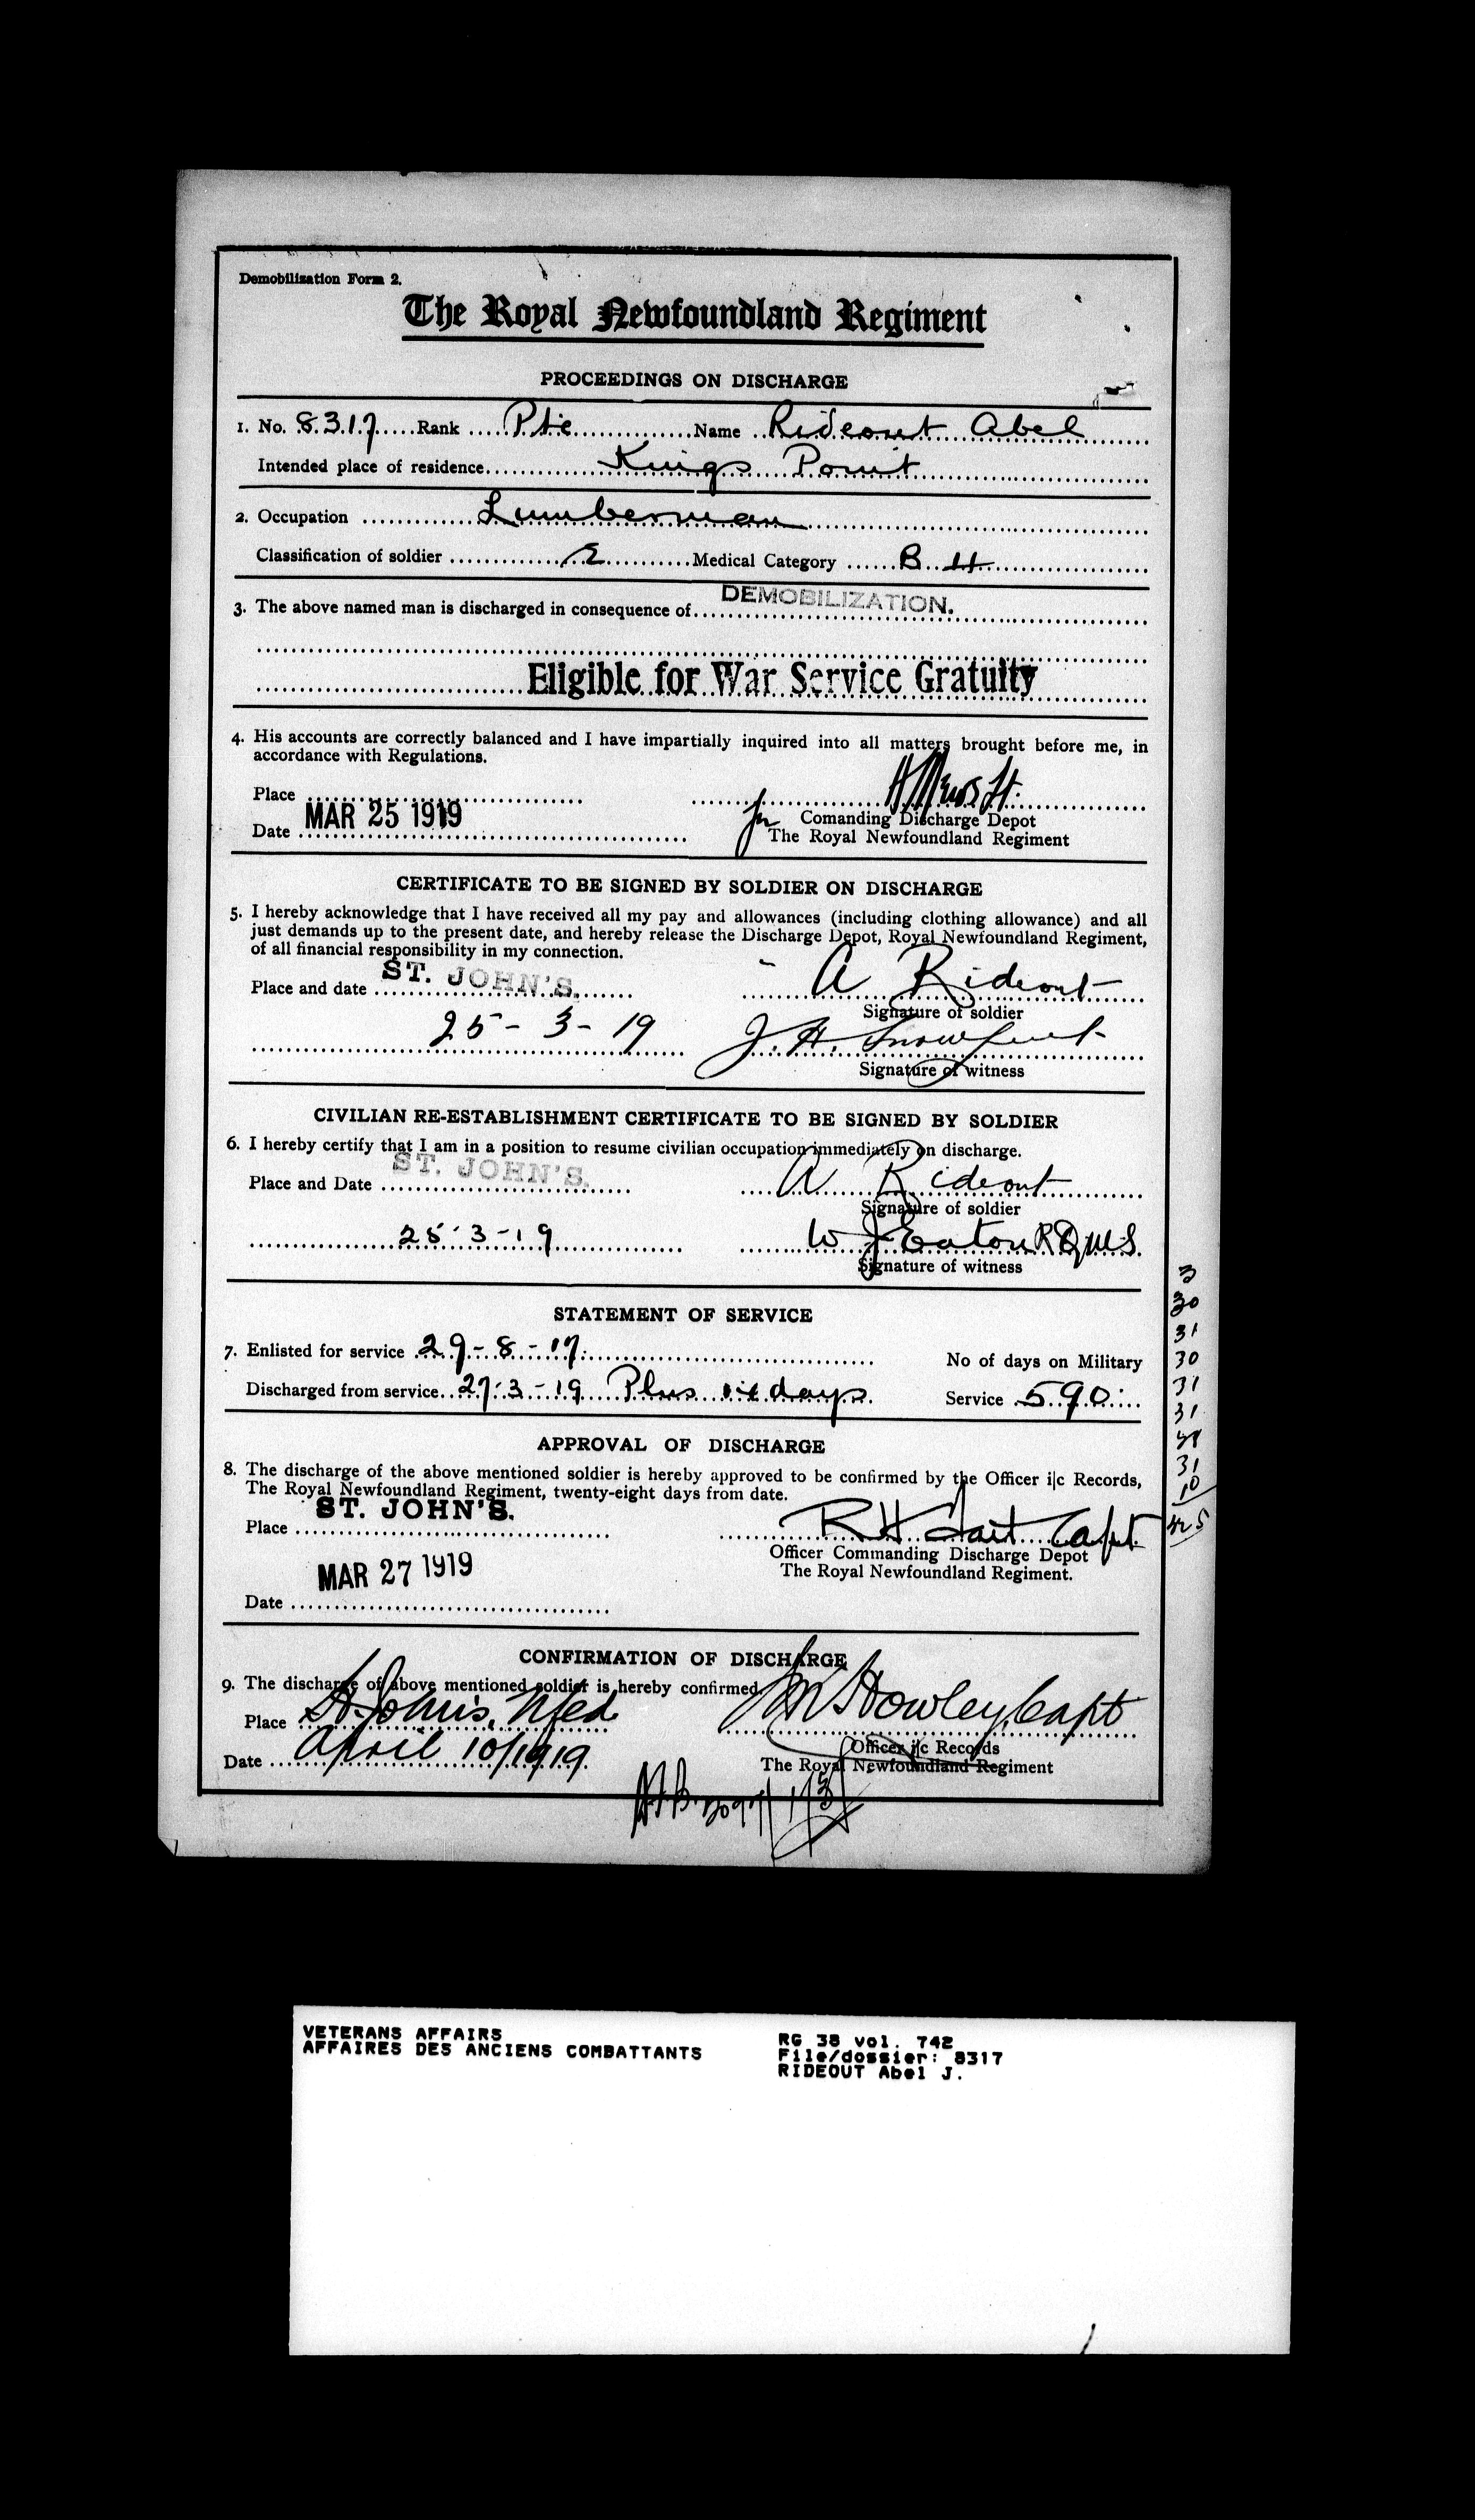 Demobilization Form 2.
The Royal Newfoundland Regiment
PROCEEDINGS ON DISCHARGE
1. No. 8317 Rank Pte Name Rideout Abel
Intended place of residence Kings Point
2. Occupation Lumberman
Classification of soldier E Medical Category B II
3. The above named man is discharged in consequence of DEMOBILIZATION.
Eligible for War Service Gratuity
4. His accounts are correctly balanced and I have impartially inquired into all matters brought before me, in
accordance with Regulations.
Place
Date MAR 25 1919
for Comanding Discharge Depot
The Royal Newfoundland Regiment
CERTIFICATE TO BE SIGNED BY SOLDIER ON DISCHARGE
5. I hereby acknowledge that I have received all my pay and allowances (including clothing allowance) and all
just demands up to the present date, and hereby release the Discharge Depot, Royal Newfoundland Regiment,
of all financial responsibility in my connection.
Place and date ST. JOHN'S. A Rideout
Signature of soldier
25-3-19 J. H.
Signature of witness
CIVILIAN RE-ESTABLISHMENT CERTIFICATE TO BE SIGNED BY SOLDIER
6. I hereby certify that I am in a position to resume civilian occupation immediately on discharge.
Place and Date ST. JOHN'S. A Rideout
Signature of soldier
25-3-19 W J Eaton RQMS
Signature of witness
STATEMENT OF SERVICE
7. Enlisted for service 29-8-17 No of days on Military
Discharged from service 27-3-19 Plus 14 days Service 590
3
30
31
30
31
31
31
10
425
APPROVAL OF DISCHARGE
8. The discharge of the above mentioned soldier is hereby approved to be confirmed by the Officer i|c Records,
The Royal Newfoundland Regiment, twenty-eight days from date.
Place ST. JOHN'S. R H Tait Capt.
Officer Commanding Discharge Depot
The Royal Newfoundland Regiment.
MAR 27 1919
Date
CONFIRMATION OF DISCHARGE
9. The discharge of above mentioned soldier is hereby confirmed.
Place St. John's, Nfld. Howley, Capt
Officer i|c Records
Date April 10/1919 The Royal Newfoundland Regiment
VETERANS AFFAIRS
AFFAIRES DES ANCIENS COMBATTANTS
RG 38 vol. 742
File/dossier: 8317
RIDEOUT Abel J.